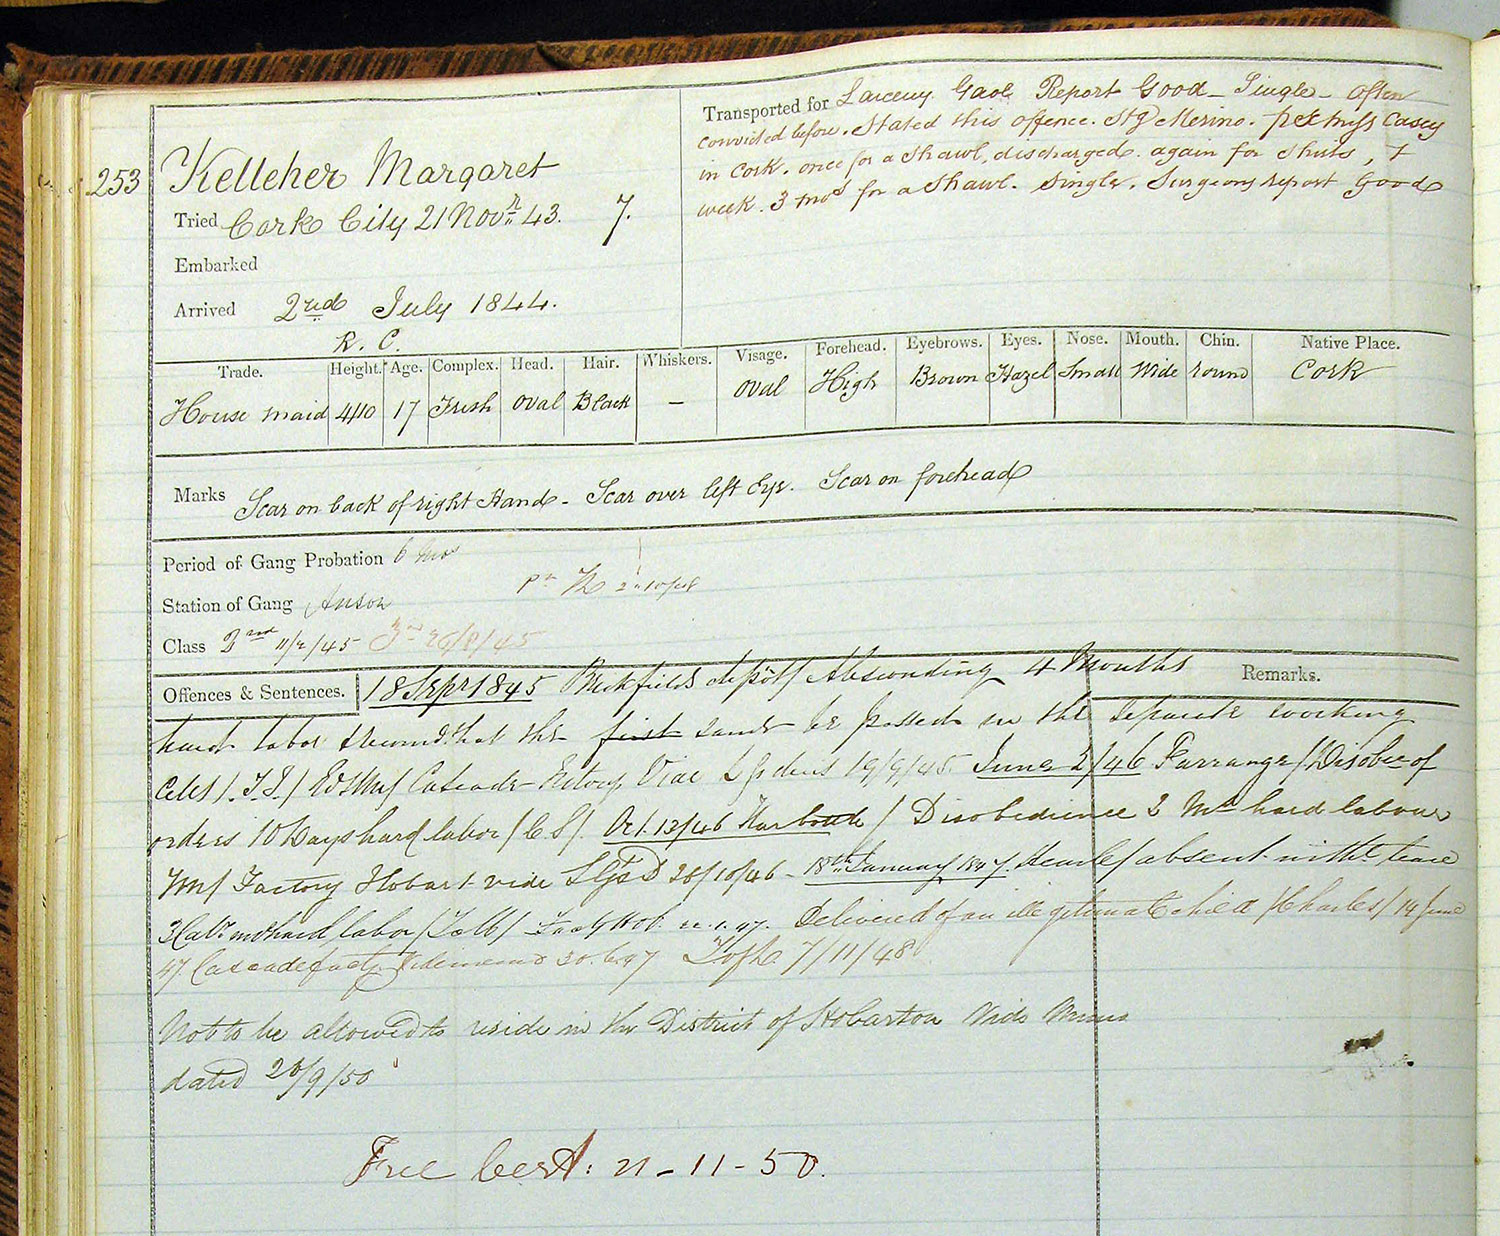 Transported for Larceny Gaol Report Good – Single – often
convicted before. Stated this offence. Stg Merino. Miss Casey
in Cork. once for a Shawl, discharged. again for Shirts, 1
week. 3 mos for a Shawl. Single. Surgeons report Good
253
Kelleher Margaret
Tried Cork City 21 Novr 43. 7.
Embarked
Arrived 2nd July 1844.
R. C.
Trade. Height. Age. Complex. Head. Hair. Whiskers. Visage. Forehead. Eyebrows. Eyes. Nose. Mouth. Chin. Native Place.
House maid 4/10 17 Fresh oval Black – oval High Brown Hazel Small Wide round Cork
Marks Scar on back of right Hand – Scar over left Eye. Scar on forehead
Period of Gang Probation 6 mos
Station of Gang Anson
Class 2nd 11/2/45 3rd 26/8/45
Offences & Sentences. 18 Sepr 1845 depôt / Absconding 4 Months Remarks.
hard labor & recomd. that the first be passed in the separate working
cells / Cascade Factory Vide 19/9/45. June 2/46 / Disobce of
orders 10 Days hard labor / Oct. 13/46 / Disobedience 2 Ms hard labour
Factory Hobart vide 28/10/46 – 18th January 1847. / absent without leave
3 hard labor / Delivered of an illegitimate child / Charles / 14 June
47 Cascade facty. 30.6.47 7/11/48
Not to be allowed to reside in the District of Hobarton Vide
dated 20/9/50
Free Cert: 21 – 11 – 50.